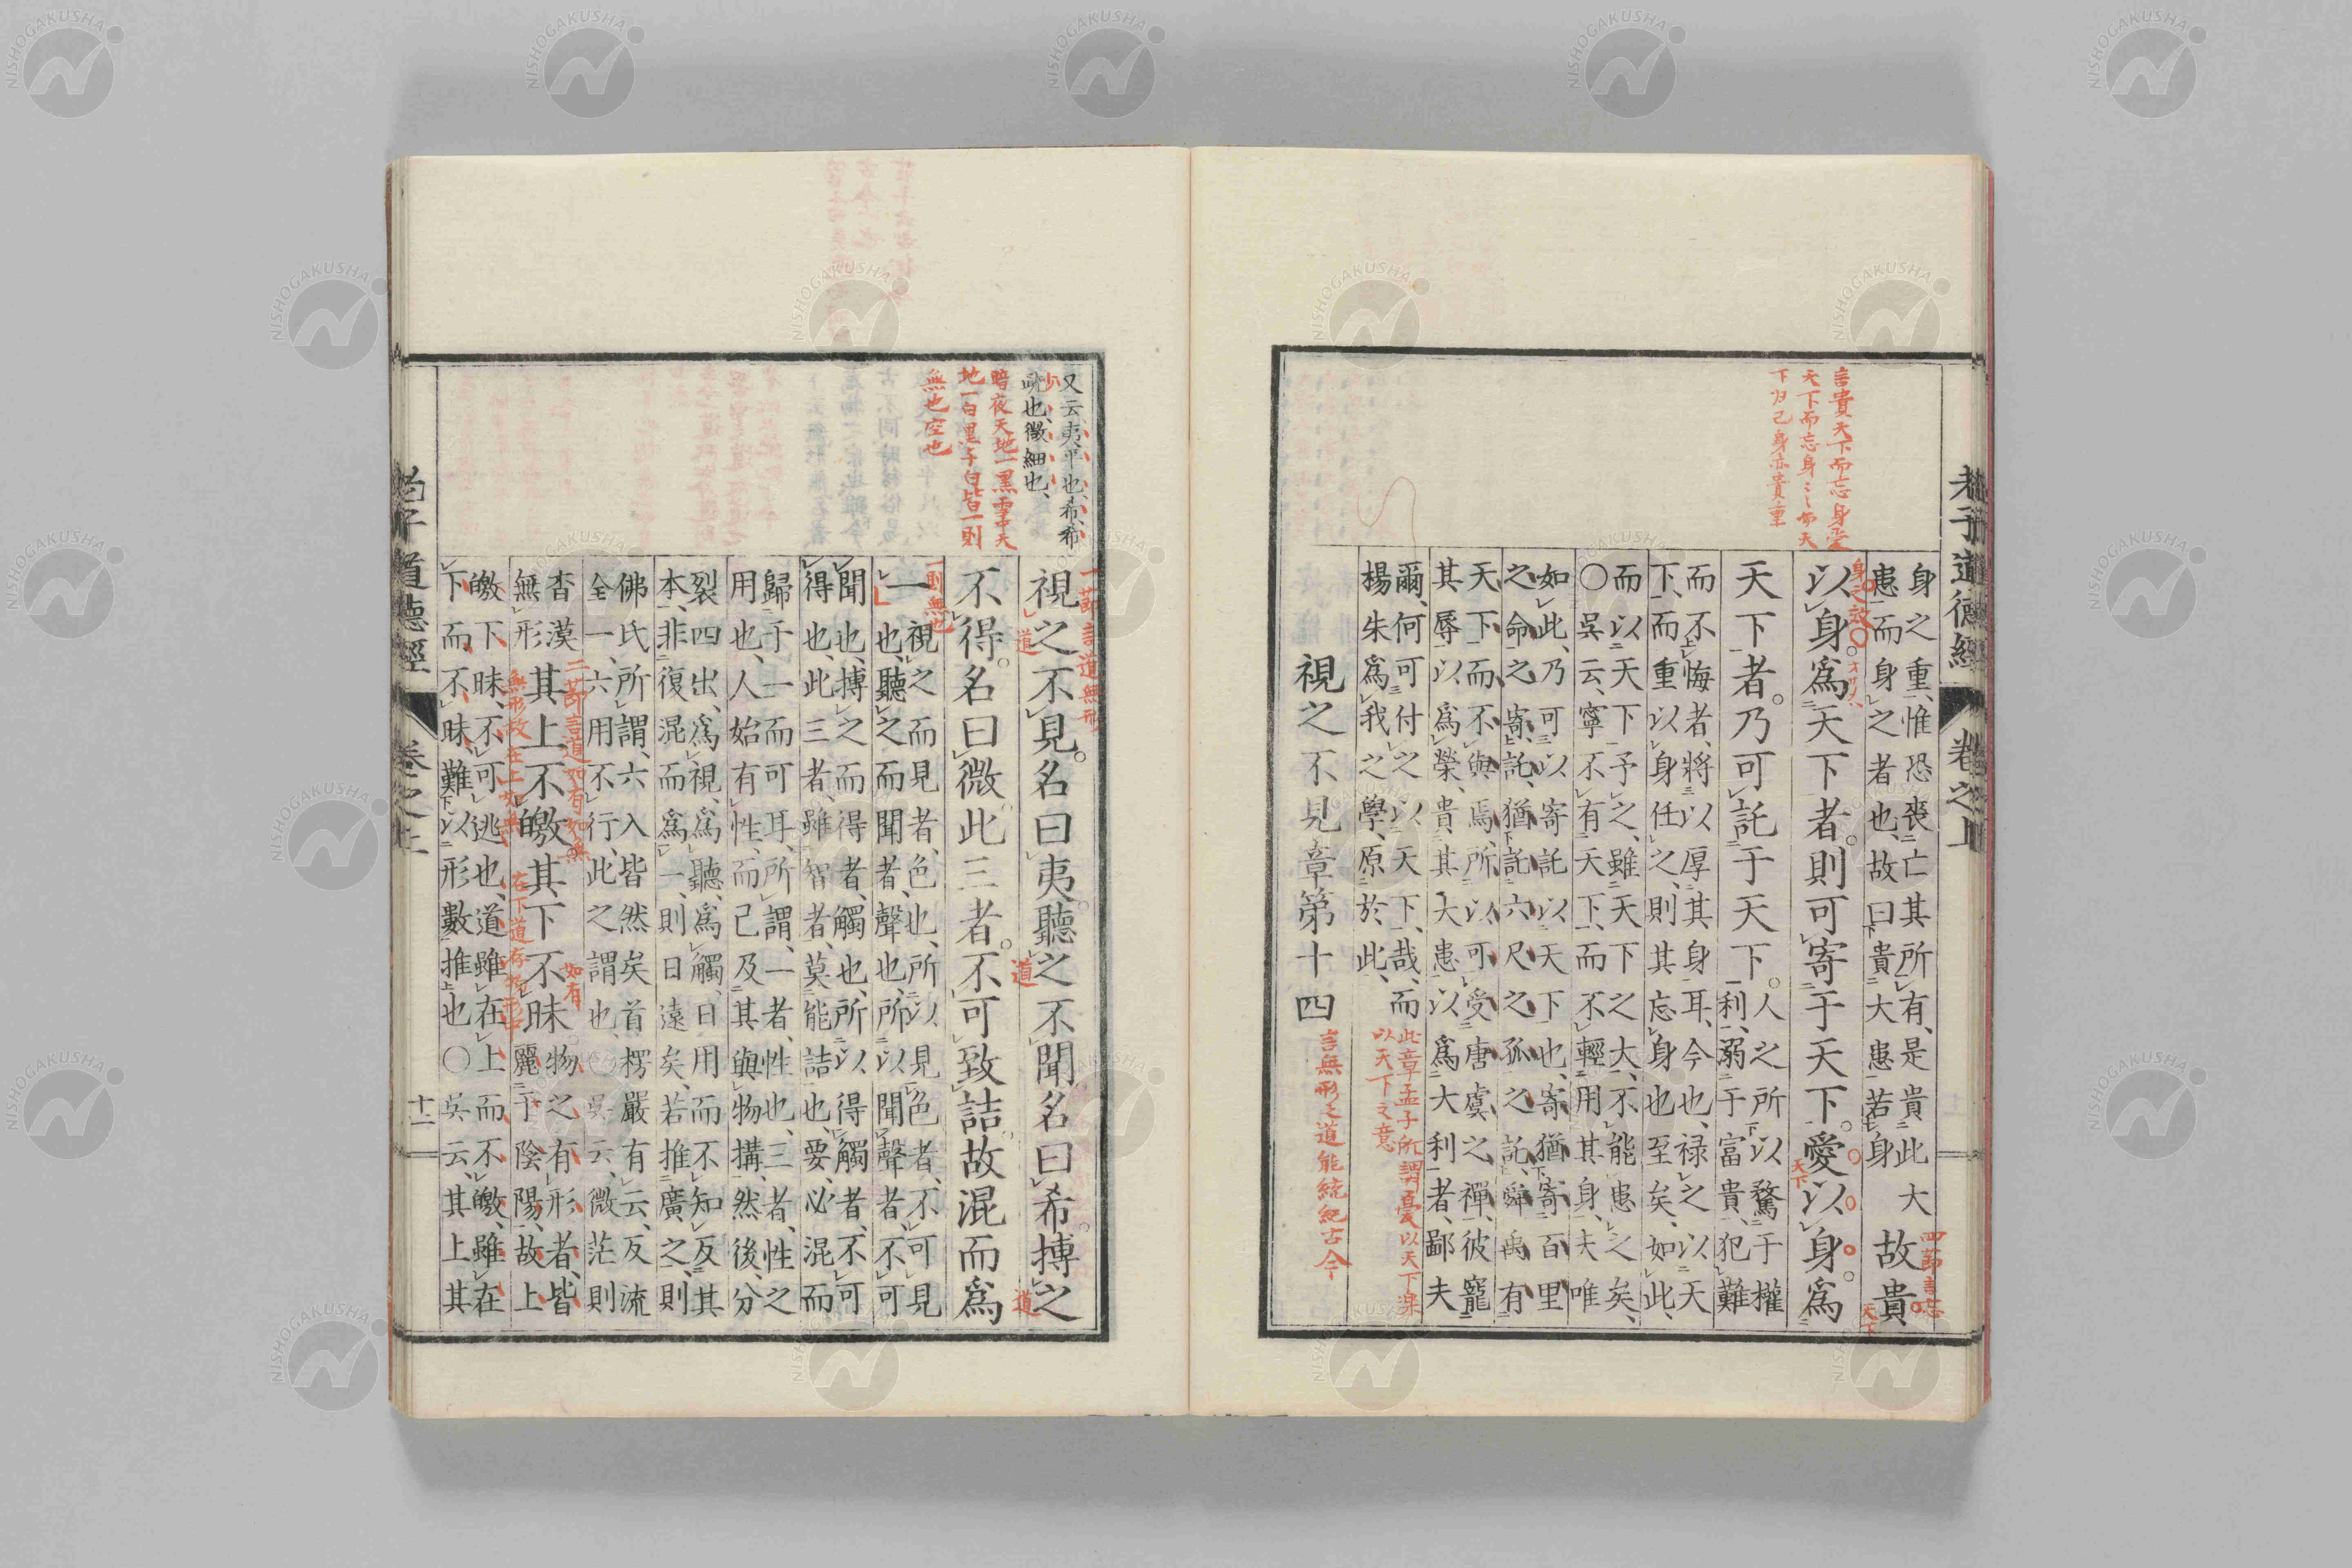 老子道德經 卷之上
言貴天下而忘身愛
天下而忘身〻而天
下於己身亦貴重
身之重、惟恐喪亡其所有、是貴此大
患而身之者也、故曰貴大患若身
故貴
四節言忘
身之故
天下
以身爲天下者。則可寄于天下。愛以身爲
天下
天下者。乃可託于天下。
人之所以騖于權
利、溺于富貴、犯難
而不悔者、將以厚其身耳、今也、禄之以天
下、而重以身任之、則其忘身也至矣、如此、
而以天下予之、雖天下之大、不能患之矣、
○吳云、寧不有天下、而不輕用其身、夫唯
如此、乃可以寄託以天下也、寄猶寄百里
之命之寄、託猶託六尺之孤之託、舜禹有
天下而不與焉、所以可受唐虞之禪、彼寵
其辱以爲榮、貴其大患以爲大利者、鄙夫
爾、何可付之以天下哉、而
楊朱爲我之學、原於此、
此章孟子所謂憂以天下樂
以天下之意
視之不見章第十四
言無形之道能統紀古今
又云、夷平也、希、希
也、微細也、
暗夜天地一黒雪中天
地一白黒子白皆一則
無也空也
一節言道無形
視之不見。名曰夷。聽之不聞。名曰希。搏之
道
道
道
不得。名曰微。此三者。不可致詰。故混而爲
一則無也
一
視之而見者、色也、所以見色者、不可見
也、聽之而聞者、聲也、所以聞聲者、不可
聞也、搏之而得者、觸也、所以得觸者、不可
得也、此三者、雖智者、莫能詰也、要必混而
歸于一而可耳、所謂、一者、性也、三者、性之
用也、人始有性、而已及其與物搆、然後、分
裂四出、爲視、爲聽、爲觸、日用而不知反其
本、非復混而爲一、則日遠矣、若推廣之、則
佛氏所謂、六入皆然矣首楞嚴有云、反流
全一、六用不行、此之謂也、○吳云、微茫則
杳漠
無形
其上不皦。其下不昧。
二節言道如有如無
無形故在上如無
如有
在下道存有形中
物之有形者、皆
麗于陰陽、故上
皦下昧、不可逃也、道雖在上而不皦、雖在
下而不昧、難以形數推也○吳云、其上其
老子道德經 卷之上 十二
NISHOGAKUSHA